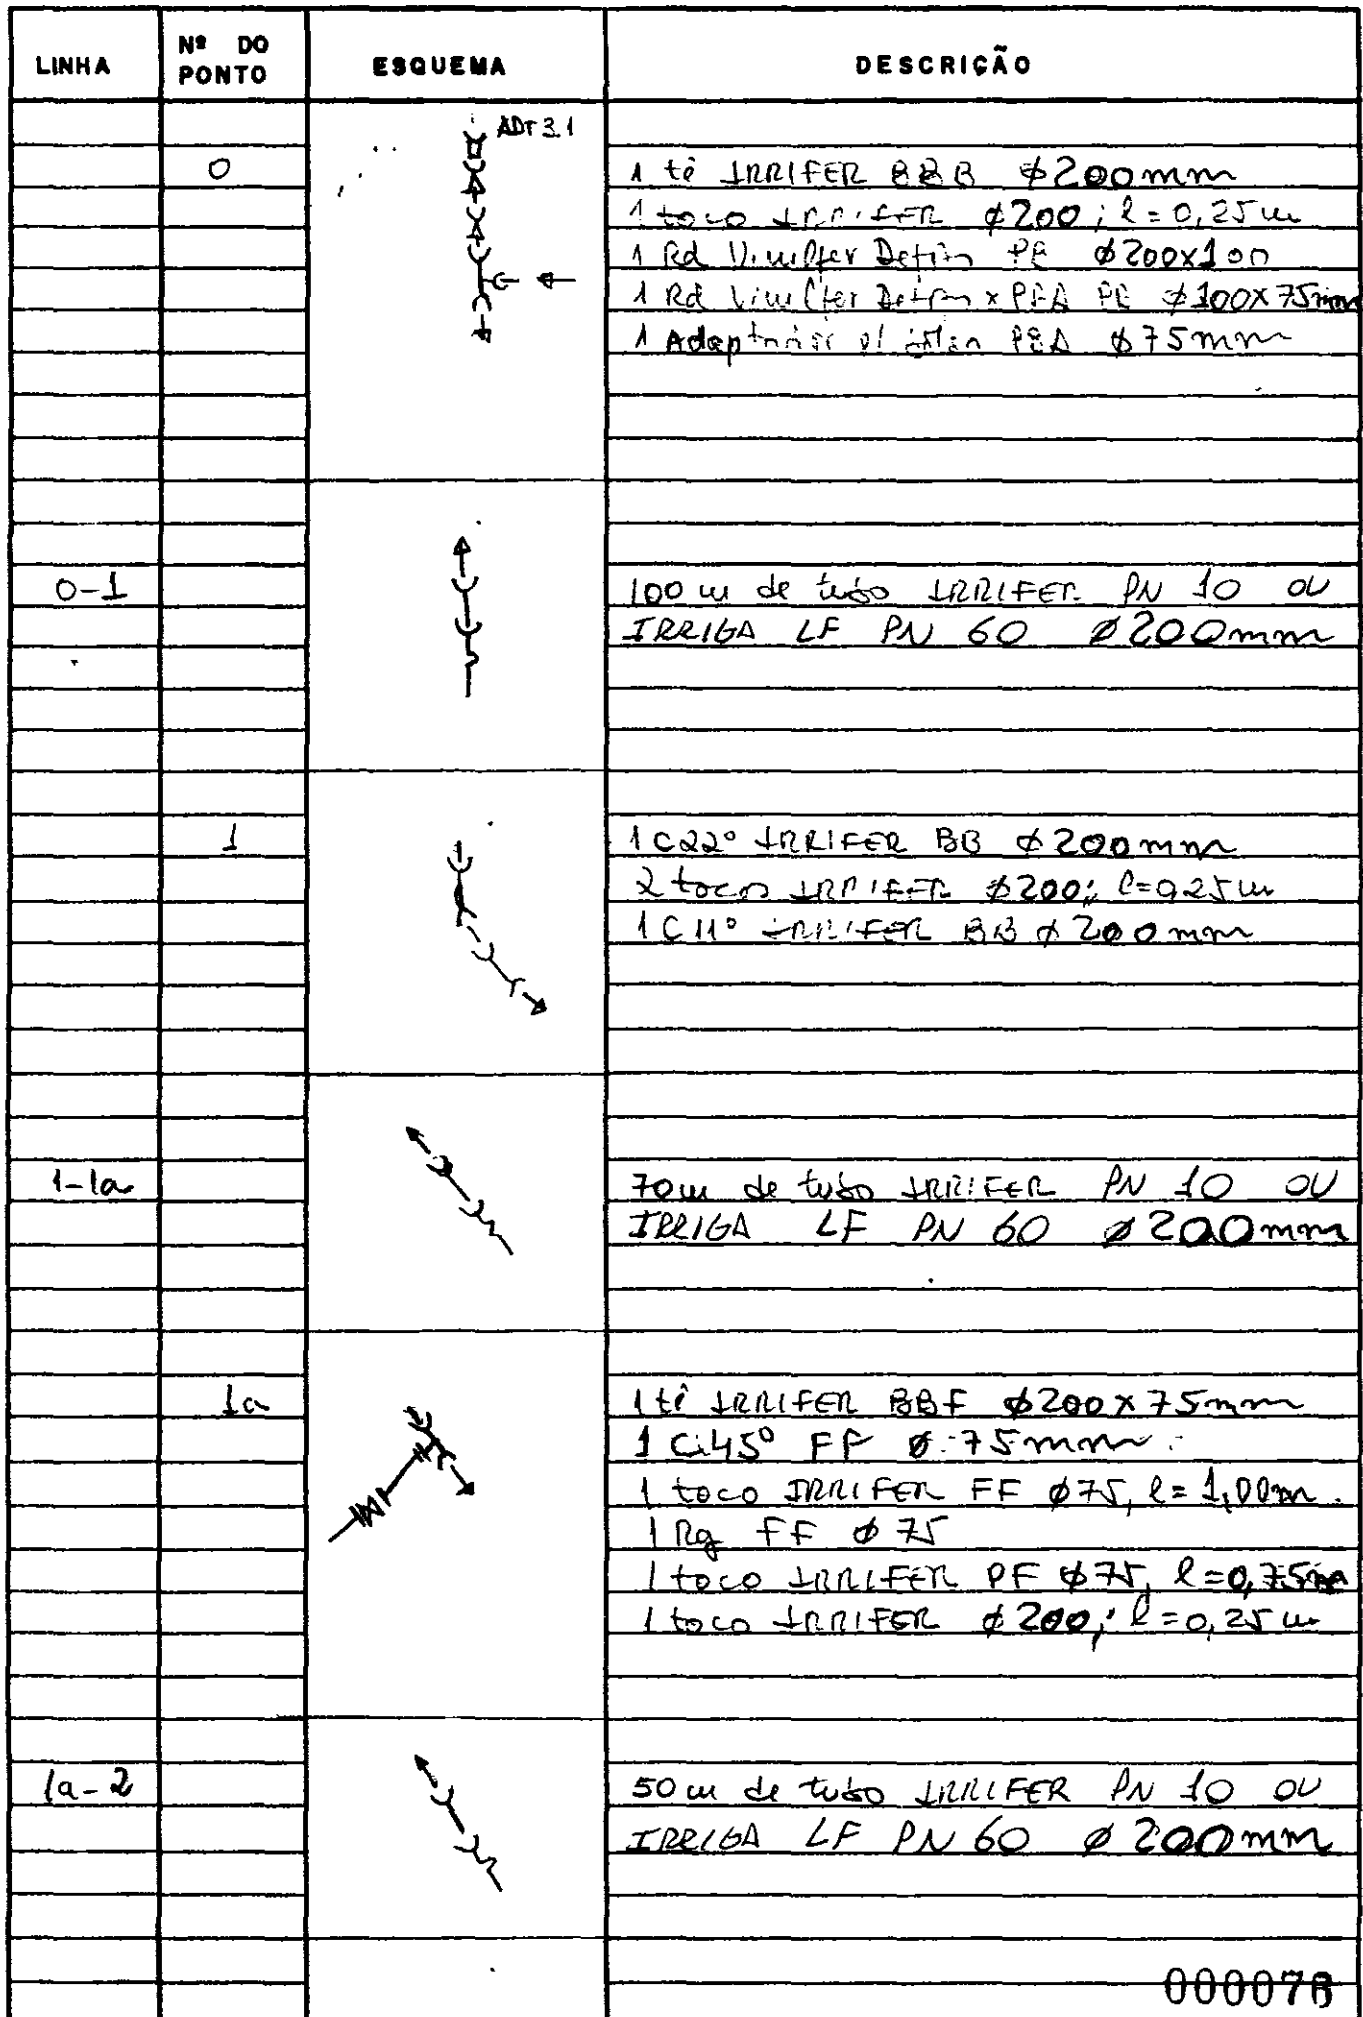 LINHA Nº DO PONTO ESQUEMA DESCRIÇÃO
ADT 3.1
0 1 tê IRRIFER BBB ø200mm
1 toco IRRIFER ø200; l=0,25m
1 Rd Vinilfer Defofo PB ø200x100
1 Rd Vinilfer Defofo x PBA PB ø100x75mm
1 Adaptador PBA ø75mm
0-1 100 m de tubo IRRIFER PN 10 OU
IRRIGA LF PN 60 ø200mm
1 1 C22° IRRIFER BB ø200mm
2 tocos IRRIFER ø200; l=0,25m
1 C11° IRRIFER BB ø200mm
1-1a 70m de tubo IRRIFER PN 10 OU
IRRIGA LF PN 60 ø200mm
1a 1 tê IRRIFER BBF ø200x75mm
1 C45° FF ø 75mm
1 toco IRRIFER FF ø75, l=1,00m.
1 Rg FF ø75
1 toco IRRIFER PF ø75, l=0,75m
1 toco IRRIFER ø200; l=0,25m
1a-2 50m de tubo IRRIFER PN 10 OU
IRRIGA LF PN 60 ø200mm